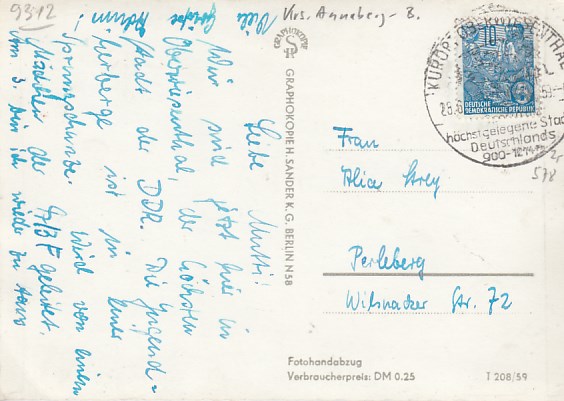 9312
Krs. Annaberg-B.
Liebe Mutti!
Wir sind jetzt hier in
Oberwiesenthal, der höchsten
Stadt der DDR. Die Jugend=
herberge ist in einer
Sprungschanze. Wird von einem
Mädchen der geleitet.
Am 3. bin ich wieder zu Haus
Viele Grüße
GRAPHOKOPIE H. SANDER K.G. BERLIN N 58
KURORT OBERWIESENTHAL
höchstgelegene Stadt
Deutschlands
900-1214m
10
DEUTSCHE
DEMOKRATISCHE REPUBLIK
578
Frau
Alice Strey
Perleberg
Wilsnacker Str. 72
Fotohandabzug
Verbraucherpreis: DM 0.25
T 208/59